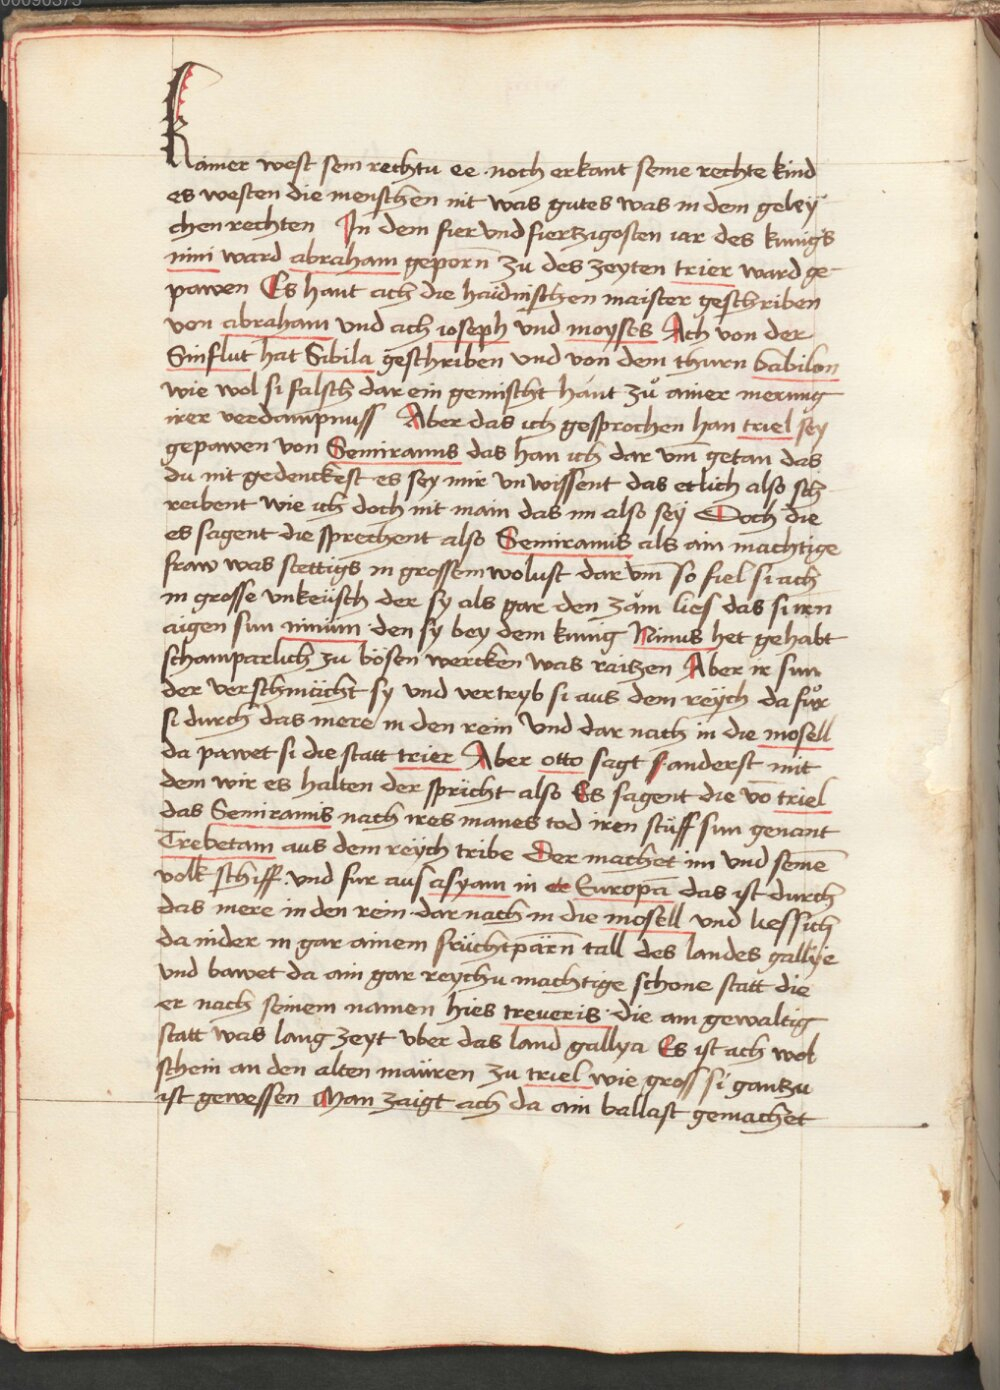 00090375
Kainer west sein rechtu ee noch erkant seine rechte kind
es westen die menschen nit was gutes was in dem geley
chen rechten In dem fier und fiertzigosten iar des kunigs
nini ward abraham geporn zu des zeyten trier ward ge
pawen Es hant ach die haidnischen maister geschriben
von abraham und ach ioseph und moyses Ach von der
Sinflut hat Sibila geschriben und von dem thurn babilon
wie wol si falsch dar ein gemischt hant zů ainer merung
irer verdampnuss Aber das ich gesprochen han triel sey
gepawen von Semiramis das han ich dar vm̄ getan das
du nit gedenckest es sey mir vnwissent das etlich also sch
reibent wie ich doch nit main das im also sey Doch die
es sagent die sprechent also Semiramis als ain machtige
fraw was stettigs in grossem wolust dar vm̄ so fiel si ach
in grosse vnkeüsch der sy als gar den zäm lies das si irn
aigen sun ninum den sy bey dem kunig Ninus het gehabt
schamparlich zu bösen wercken was raitzen Aber ir sun
der verschmächt sy und vertryb si aus dem reÿch da fůr
si durch das mere in den rein und dar nach in die mosell
da pawet si die statt trier Aber otto sagt anderst mit
dem wir es halten der spricht also Es sagent die vō triel
das Semiramis nach ires manes tod iren stüff sun genant
Trebetam aus dem reÿch tribe Der machet im und seinē
volk schiff und fur aus asyam in Europā das ist durch
das mere in den rein dar nach in die mosell und lies sich
da nider in gar ainem früchtpärn tall des landes gallye
und bawet da ain gar reychu machtige schone statt die
er nach seinem namen hies treveris die ain gewaltig
statt was lang zeyt vber das land gallya Es ist ach wol
schein an den alten mauren zu triel wie gross si gantzu
ist gewessen Man zaigt ach da ain ballast gemachet